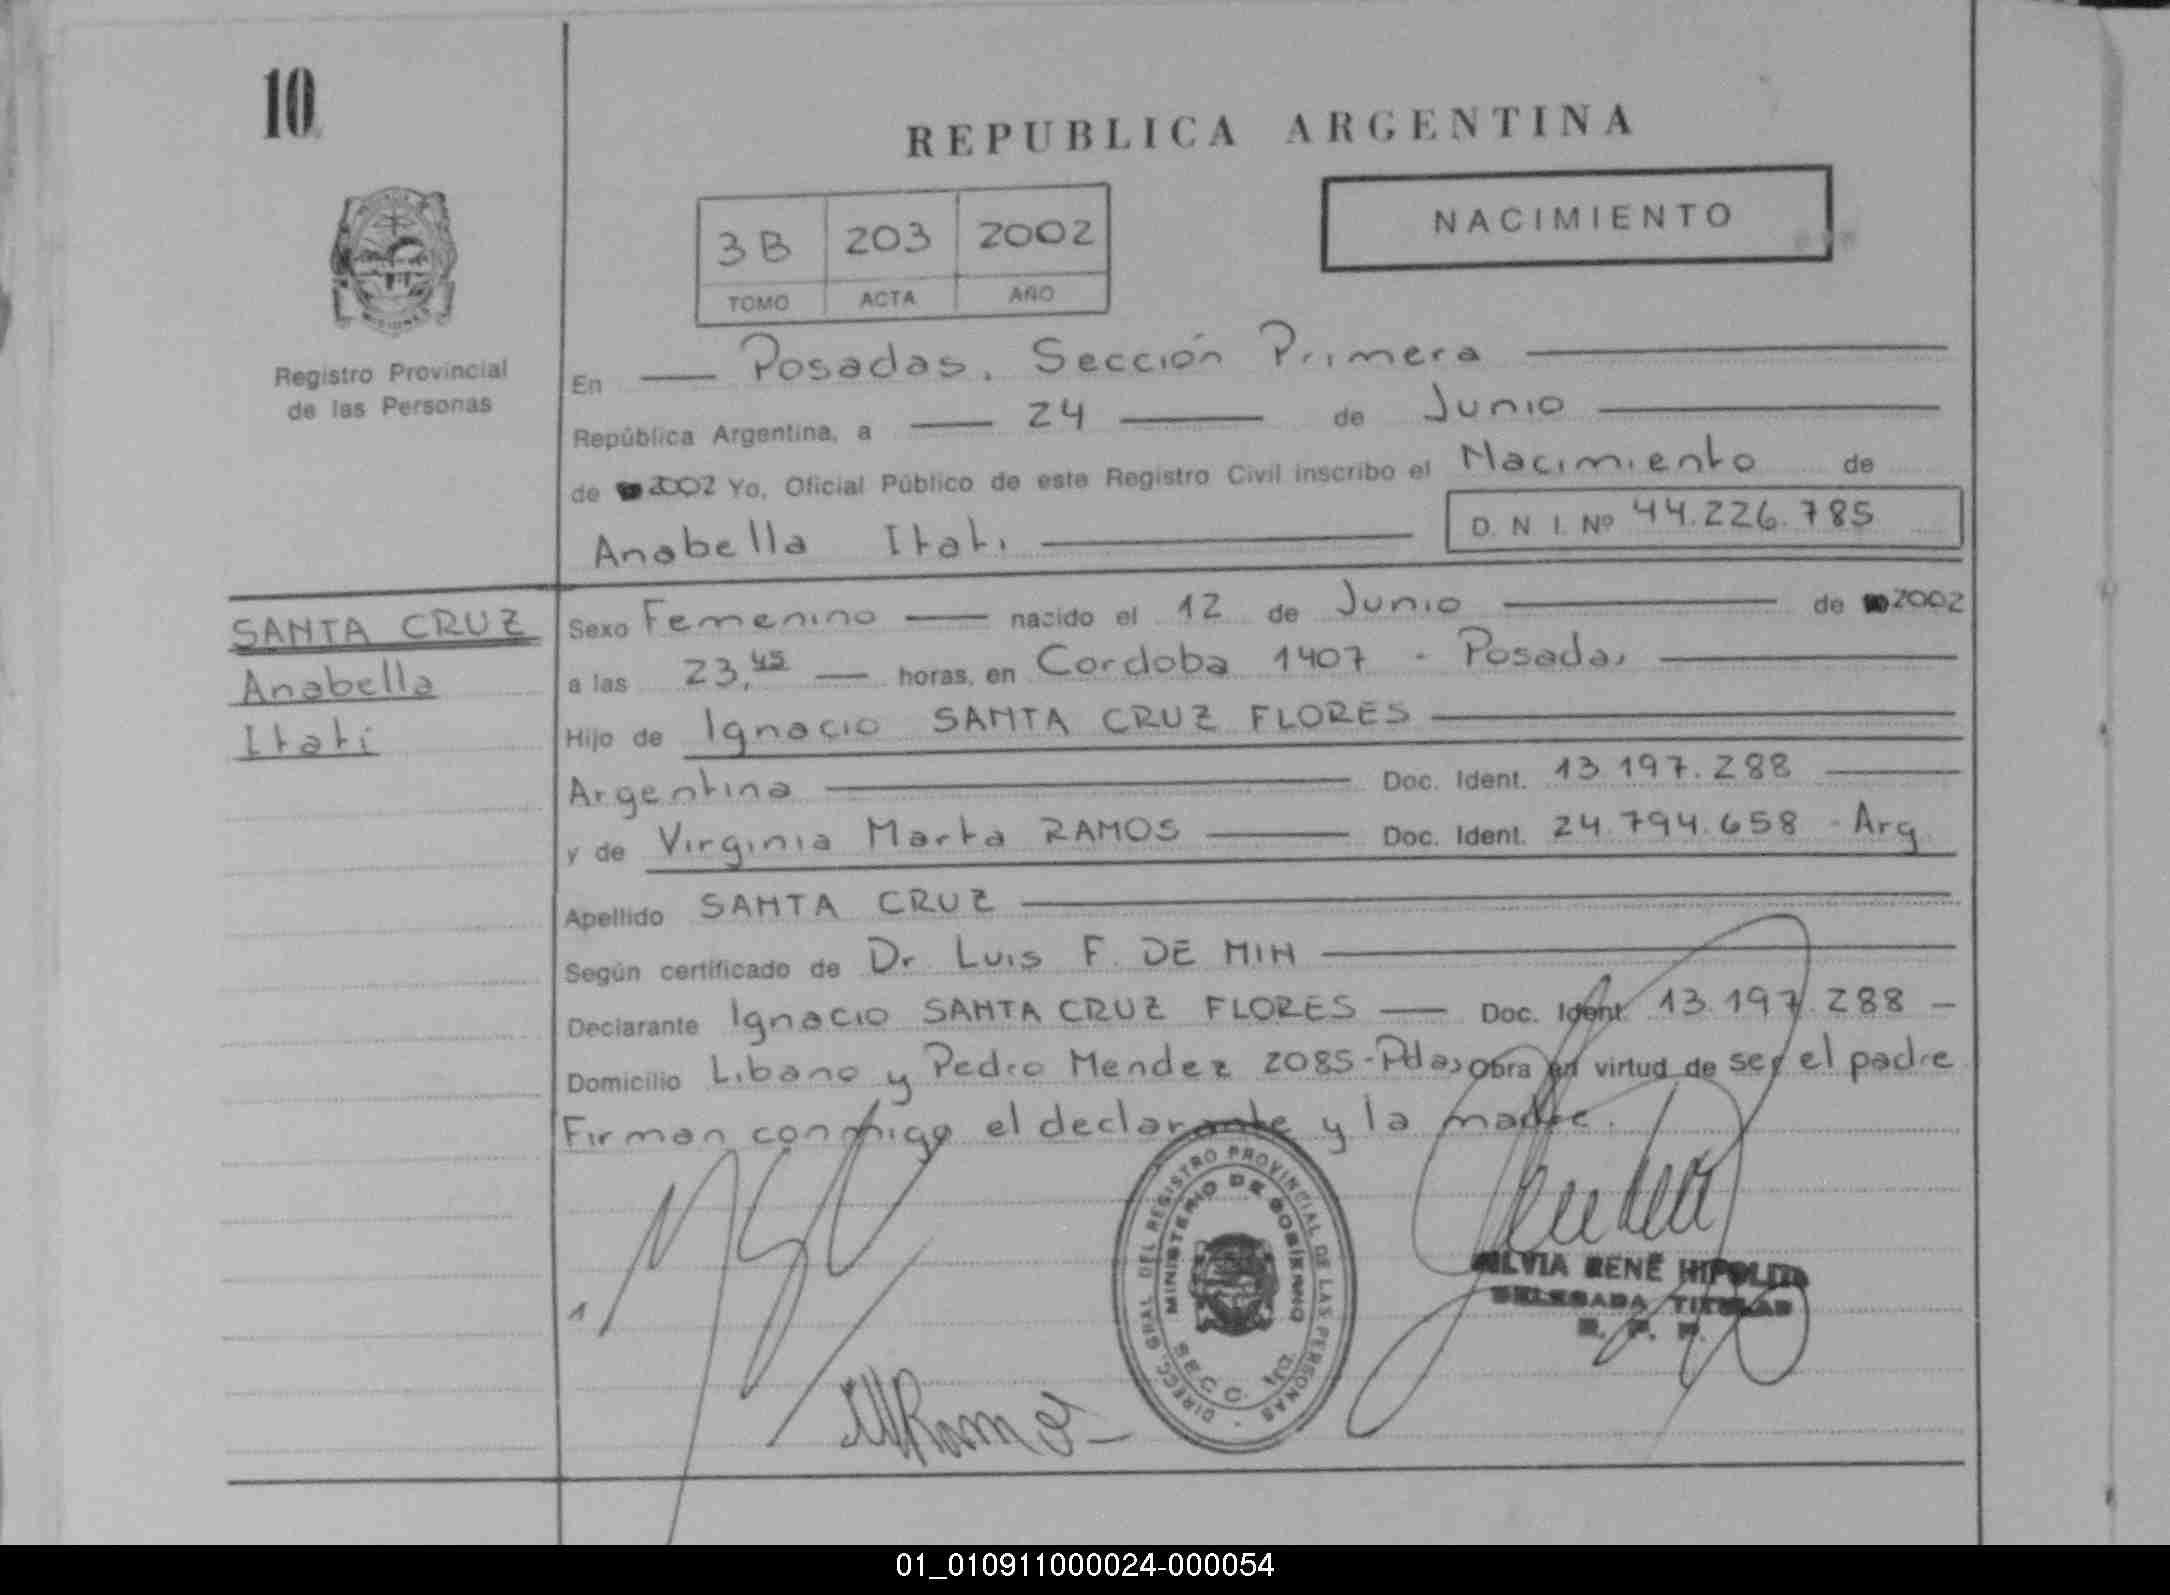 10
REPUBLICA ARGENTINA
NACIMIENTO
3B 203 2002
TOMO ACTA AÑO
MISIONES
Registro Provincial
de las Personas
En Posadas, Sección Primera
República Argentina, a 24 de Junio
de 2002 Yo, Oficial Público de este Registro Civil inscribo el Nacimiento de
Anabella Itati D. N. I. Nº 44.226.785
SANTA CRUZ
Anabella
Itatí
Sexo Femenino nacido el 12 de Junio de 2002
a las 23,45 horas, en Cordoba 1407 - Posadas
Hijo de Ignacio SANTA CRUZ FLORES
Argentina Doc. Ident. 13.197.288
y de Virginia Marta RAMOS Doc. Ident. 24.794.658 - Arg.
Apellido SANTA CRUZ
Según certificado de Dr. Luis F. DE MIN
Declarante Ignacio SANTA CRUZ FLORES Doc. Ident. 13.197.288 -
Domicilio Libano y Pedro Mendez 2085-Pdas Obra en virtud de ser el padre
Firman conmigo el declarante y la madre.
DIRECC. GRAL DEL REGISTRO PROVINCIAL DE LAS PERSONAS
MINISTERIO DE GOBIERNO
SILVIA RENÉ HIPOLITO
DELEGADA TITULAR
R. P. P.
MRamos
01_010911000024-000054